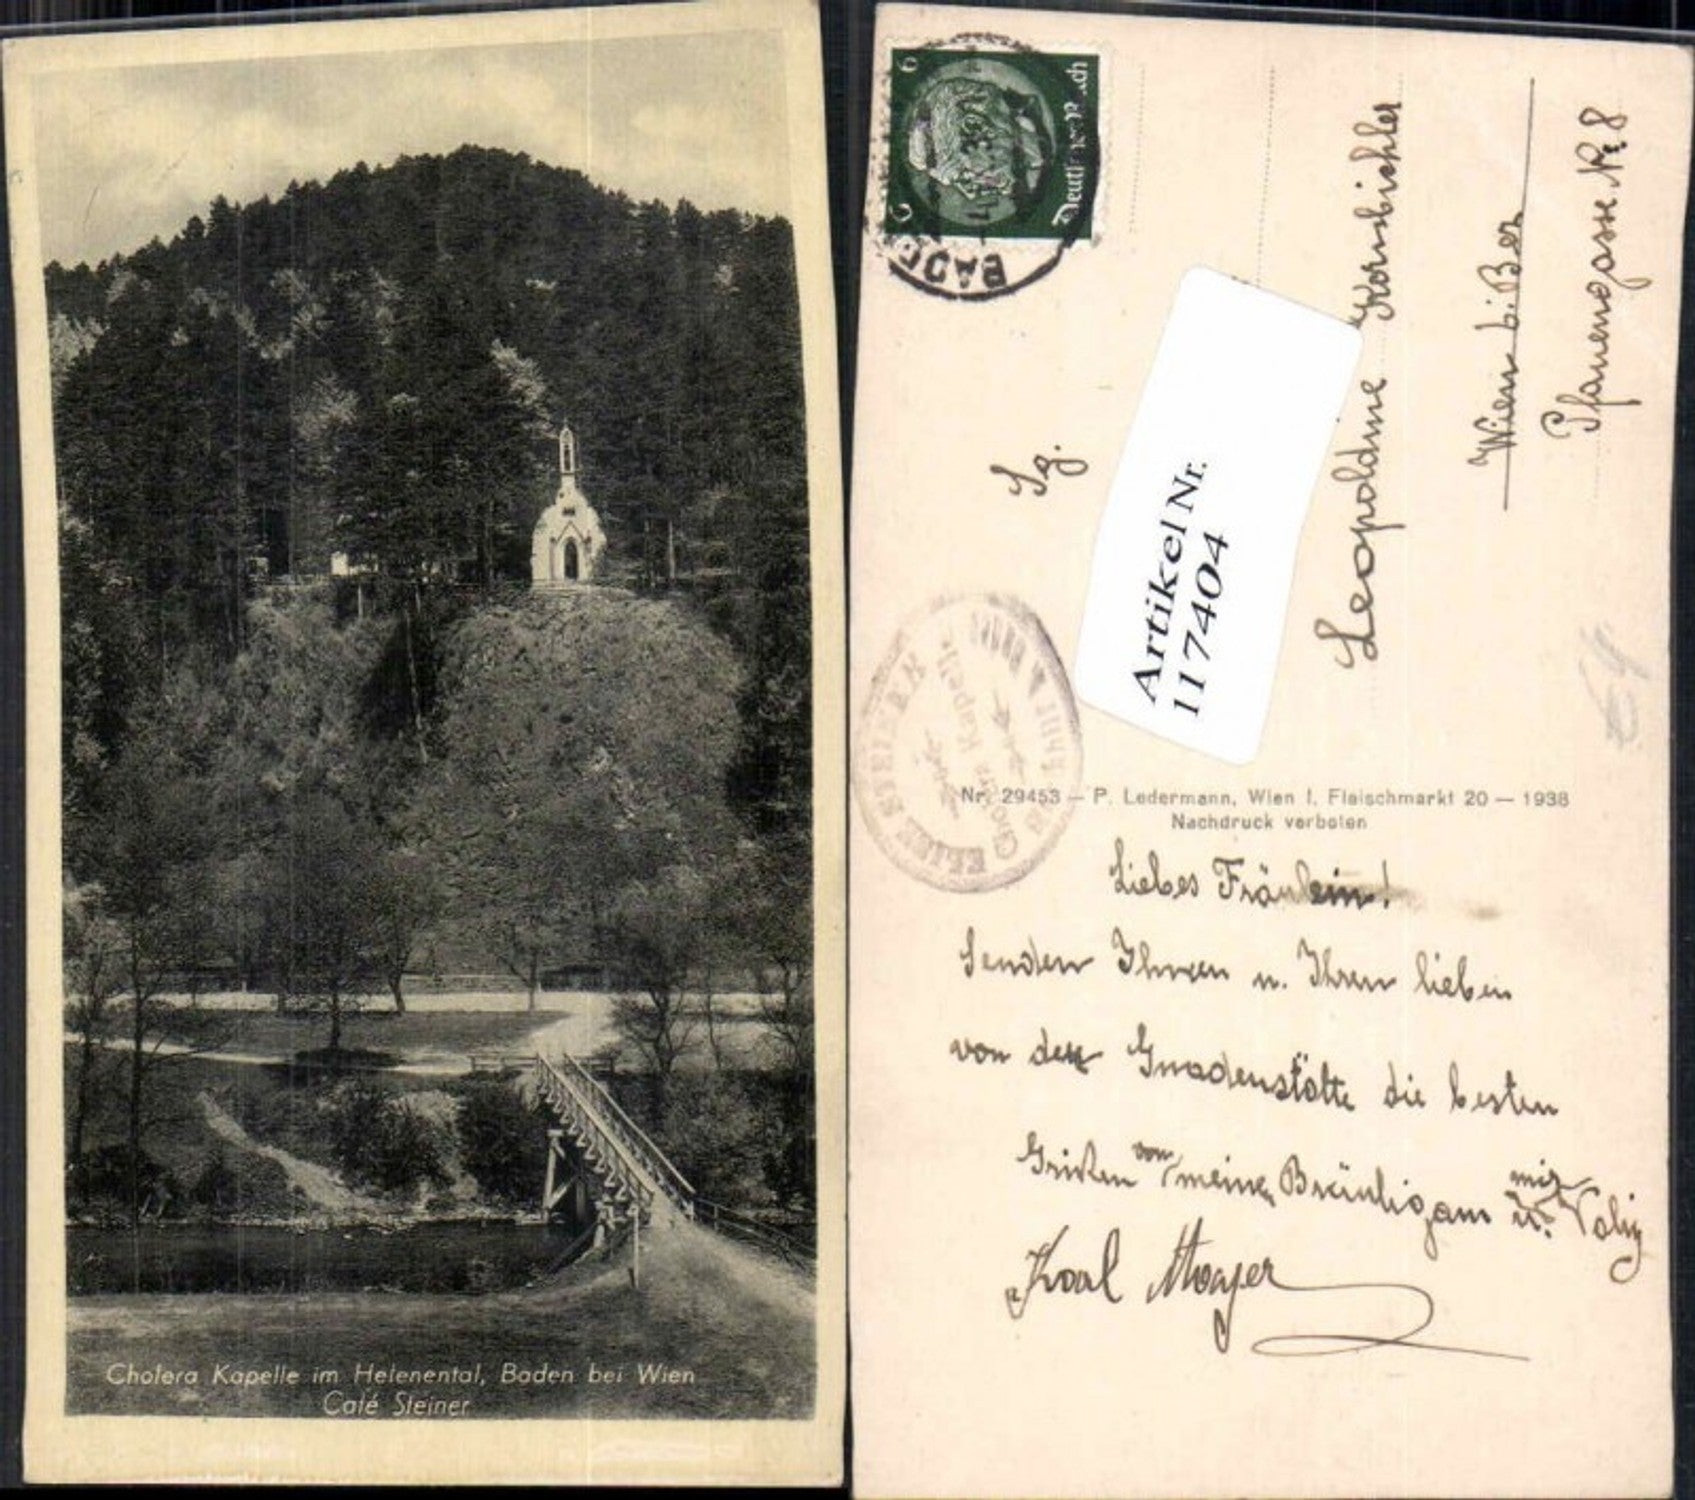 Cholera Kapelle im Helenental, Baden bei Wien
Café Steiner
6
Deutsches Reich
6
BADEN
Sg.
Leopoldine Kornbichler
Wien b. Baden
Pfarrgasse Nr. 8
Artikel Nr.
117404
Cholera Kapelle
Nr. 29453 — P. Ledermann, Wien I, Fleischmarkt 20 — 1938
Nachdruck verboten
Liebes Fräulein!
Senden Ihnen u. Ihren lieben
von der Gnadenstätte die besten
von meinen Bräutigam u. mir
Karl Mayer